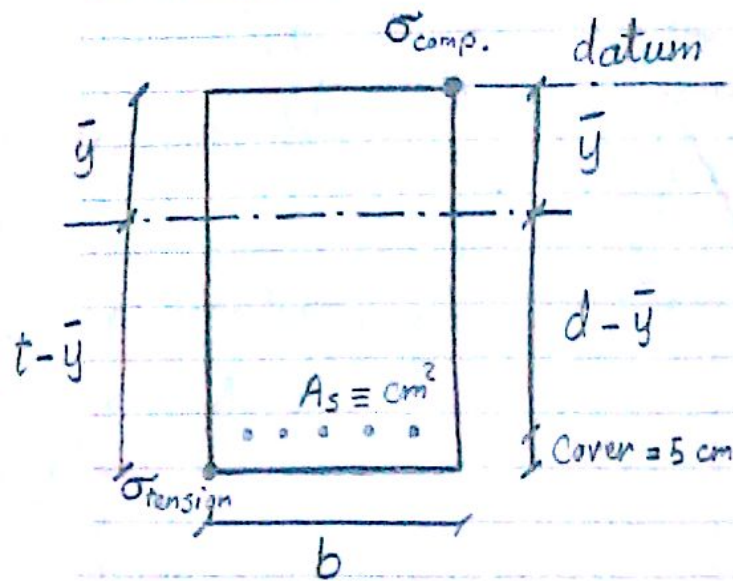 σcomp.
datum
ȳ
ȳ
t-ȳ
d-ȳ
As ≡ cm²
Cover = 5 cm
σtension
b